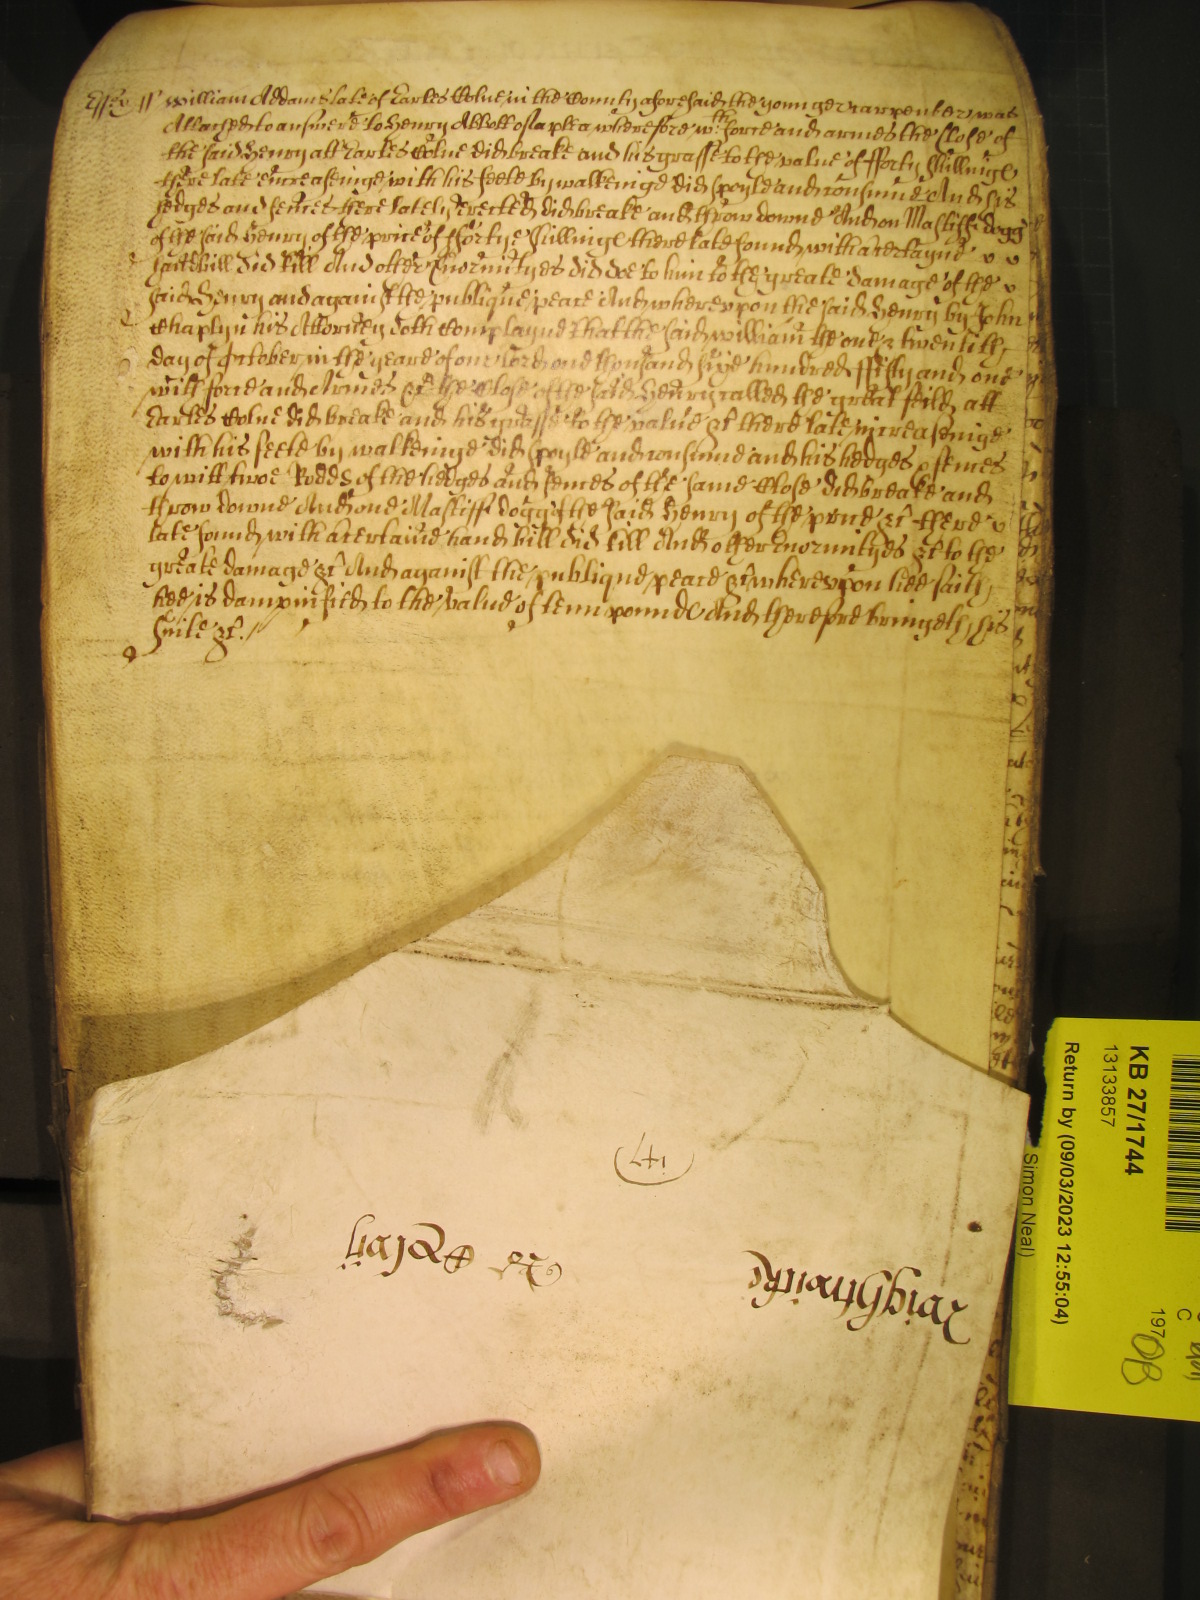 Essex ss William Addams late of Earles Colne in the County aforesaid the younger carpenter was
Attached to answere to Henry Abbott of a plea wherefore wth force and armes the Close of
the said Henry att Earles Colne did breake and his grasse to the value of fforty Shillings
there late encreasinge with his feete by walkeinge did spoyle and consume And his
hedges and fences there lately erected did breake and throw downe And on Mastiffe dogg
of the said Henry of the price of fforty Shillings there late found with a certayne
hand bill did kill And other Enormityes did doe to him to the greate damage of the
said Henry and against the publique peace And whereupon the said Henry by John
Chaplyn his Attorney doth Complayne That the said William the one & twentith
day of October in the yeare of our Lord one thousand sixe hundred ffifty and one
with force and Armes &c the Close of the said Henry called the great feild att
Earles Colne did breake and his grasse to the value &c there late increaseinge
with his feete by walkeinge did spoyle and consume and his hedges & fences
to witt twoe Rodds of the hedges and fences of the same Close did breake and
throw downe And one Mastiff dogg of the said Henry of the price &c there
late found with a certaine hand bill did kill And other Enormityes &c to the
greate damage &c And against the publique peace &c whereupon hee saith
hee is dampnified to the value of tenn pounds And therefore bringeth his
suite &c
(147)
KB 27/1744
13133857
Return by (09/03/2023 12:55:04)
Simon Neal)